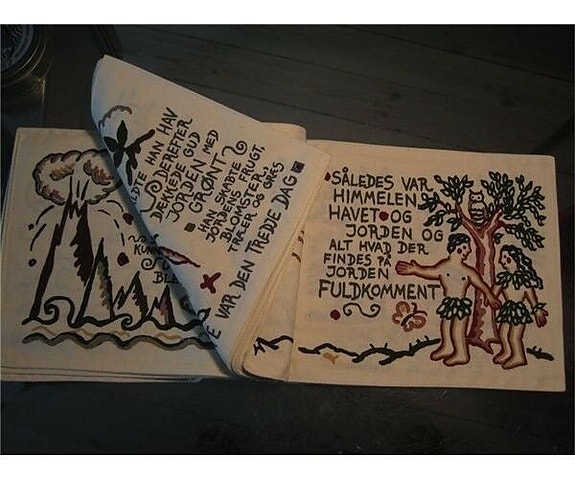 HAN HAV
DEREFTER
DÆKKEDE GUD
JORDEN MED
GRØNT
HAN SKABTE
JORDENS FRUGT,
BLOMSTER,
TRÆER OG GRÆS
VAR DEN TREDJE DAG
SÅLEDES VAR
HIMMELEN
HAVET OG
JORDEN OG
ALT HVAD DER
FINDES PÅ
JORDEN
FULDKOMMENT